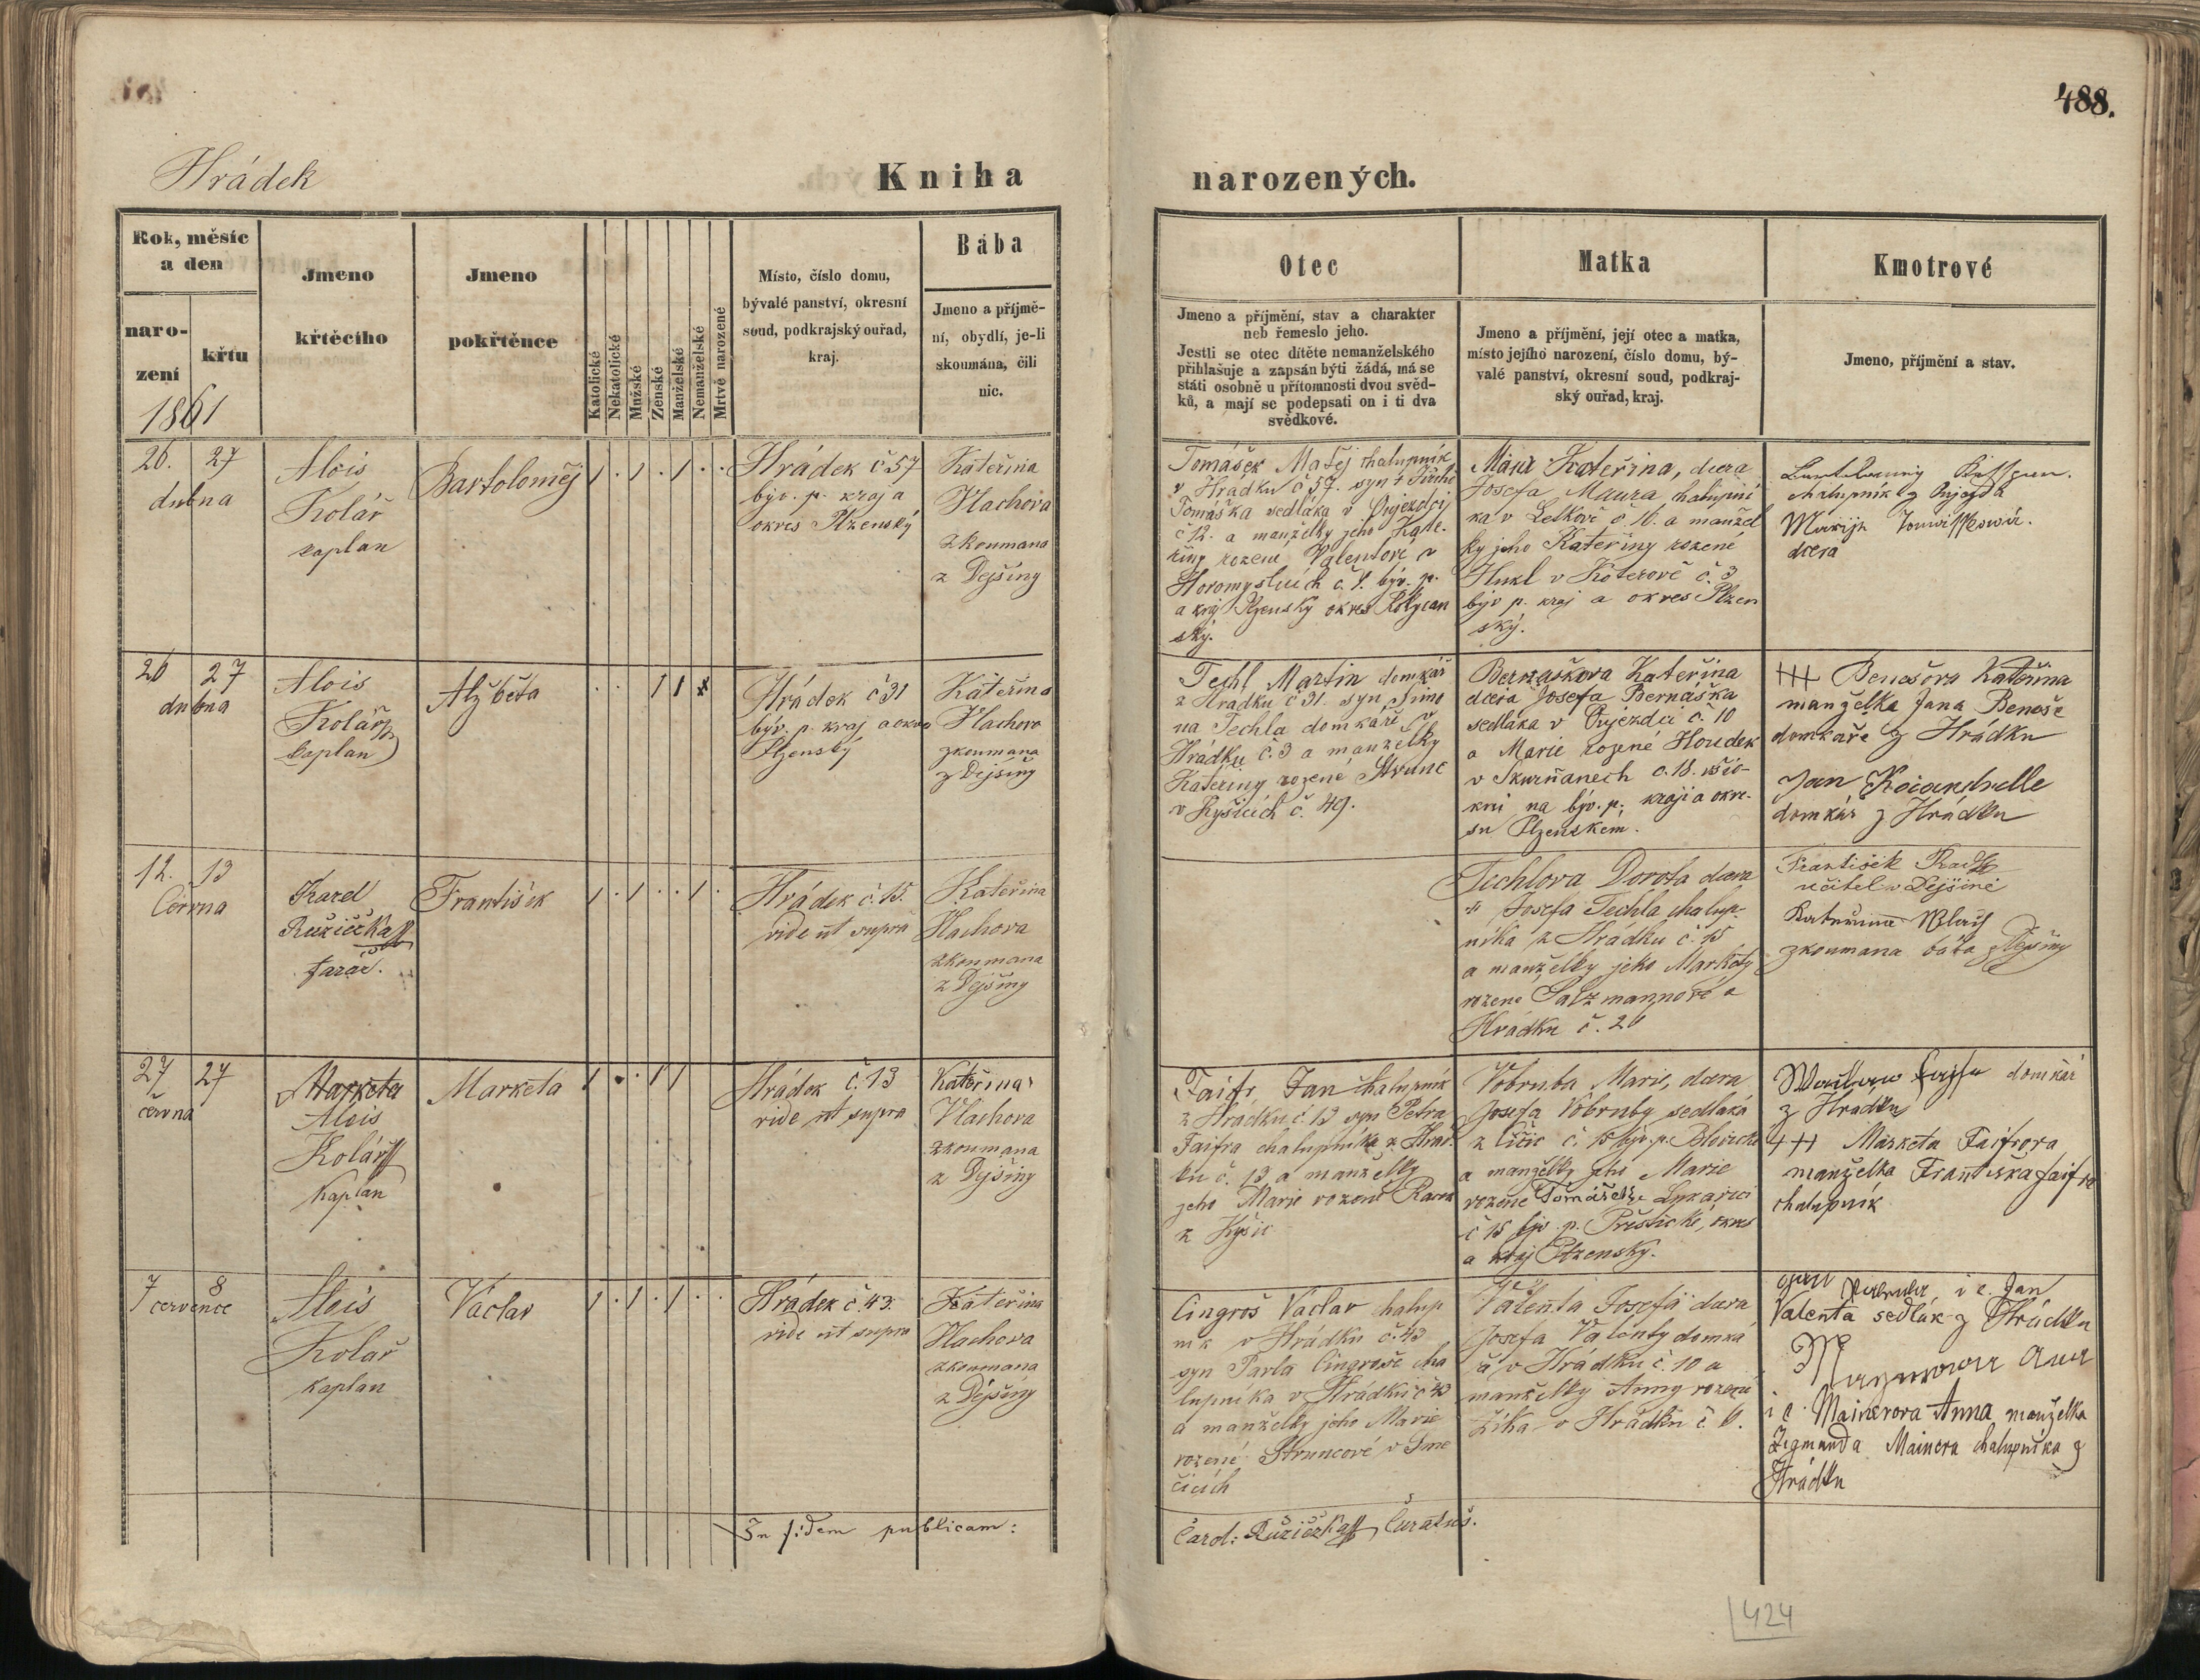 488.
Hrádek
Kniha
narozených.
Rok, měsíc
a den
naro-
zení
křtu
1861
Jmeno
křtěcího
Jmeno
pokřtěnce
Katolické
Nekatolické
Mužské
Ženské
Manželské
Nemanželské
Mrtvě narozené
Místo, číslo domu,
bývalé panství, okresní
soud, podkrajský ouřad,
kraj.
Bába
Jmeno a příjmě-
ní, obydlí, je-li
skoumána, čili
nic.
Otec
Jmeno a příjmění, stav a charakter
neb řemeslo jeho.
Jestli se otec dítěte nemanželského
přihlašuje a zapsán býti žádá, má se
státi osobně u přítomnosti dvou svěd-
ků, a mají se podepsati on i ti dva
svědkové.
Matka
Jmeno a příjmění, její otec a matka,
místo jejího narození, číslo domu, bý-
valé panství, okresní soud, podkraj-
ský ouřad, kraj.
Kmotrové
Jmeno, příjmění a stav.
26. 27
dubna
Alois
Kolář
kaplan
Bartoloměj
1 . 1 . 1 . .
Hrádek č 57
býv. p. kraj a
okres Plzenský
Kateřina
Vlachova
zkoumana
z Dejšiny
Tomášek Matěj chalupník
v Hrádku č 57. syn †
Tomáška sedláka v Přijezdcij
č 12. a manželky jeho Kate-
řiny rozené Valentové z
Horomyslicích č. 4. býv. p.
a kraj Plzenský okres Rokycan
ský.
Kateřina, dcera
Josefa Maura chalupní
ka v Letkově č. 16. a manžel
ky jeho Kateřiny rozené
Hukl v Koterově č. 3
býv p. kraj a okres Plzen
ský.
chalupník z
Marija
dcera
26 27
dubna
Alois
Kolář
kaplan
Alžběta
. . 1 1
Hrádek č 31
býv. p. kraj a okres
Plzenský
Kateřina
Vlachova
zkoumana
z Dejšiny
Techl Martin domkář
z Hrádku č 31. syn Šimo
na Techla domkáře v
Hrádku č. 3 a manželky
Kateřiny rozené Strunc
v Kyšicích č. 49.
Bernaškova Kateřina
dcera Josefa Bernáška
sedláka v Přijezdci č. 10
a Marie rozené Houdek
v Skurňanech č. 18. všic-
kni na býv. p. kraji a okre-
su Plzenském.
+++ Benešova Kateřina
manželka Jana Beneše
domkáře z Hrádku
Jan
domkář z Hrádku
12. 13
Června
Karel
Růžička
farář.
František
1 . 1 . . 1 .
Hrádek č. 15.
vide ut supra
Kateřina
Vlachova
zkoumana
z Dejšiny
Techlova Dorota dcera
† Josefa Techla chalup-
níka z Hrádku č. 15
a manželky jeho Markéty
rozene Salzmannové z
Hrádku č. 26
František
učitel w Dejšině
Kateřina Vlach
zkoumana bába z Dejšiny
27 27
června
Marketa
Alois
Kolář
Kaplan
Marketa
1 . . 1 1
Hrádek č. 13
vide ut supra
Kateřina
Vlachova
zkoumana
z Dejšiny
Faifr Jan chalupník
z Hrádku č. 13 syn Petra
Faifra chalupníka z Hrád-
ku č. 13 a manželky
jeho Marie rozené
z Kyšic
Vobruba Marie, dcera
Josefa Vobruby sedláka
z Čičic č. 15 býv. p.
a manželky jeho Marie
rozené
č 15 býv. p. Přestické, okres
a kraj Plzensky.
domkář
z Hrádku
+++ Marketa Faifrova
manželka Františka Faifra
chalupník
7 8
července
Alois
Kolář
Kaplan
Václav
1 . 1 . 1 . .
Hrádek č. 43.
vide ut supra
Kateřina
Vlachova
zkoumana
z Dejšiny
Cingroš Vaclav chalup
nik v Hrádku č. 43
syn Pavla Cingroše cha
lupníka v Hrádku č 43
a manželky jeho Marie
rozené Struncové v Sme
čicích
Valenta Josefa dcera
Josefa Valenty domká
ře v Hrádku č. 10 a
manželky Anny rozené
Žiha v Hrádku č. 6.
i c. Jan
Valenta sedlák z Hrádku
i c. Mainerova Anna manželka
Zigmunda Mainera chalupníka z
Hrádku
In fidem publicam:
Carol: Růžiczka, Curatus.
424